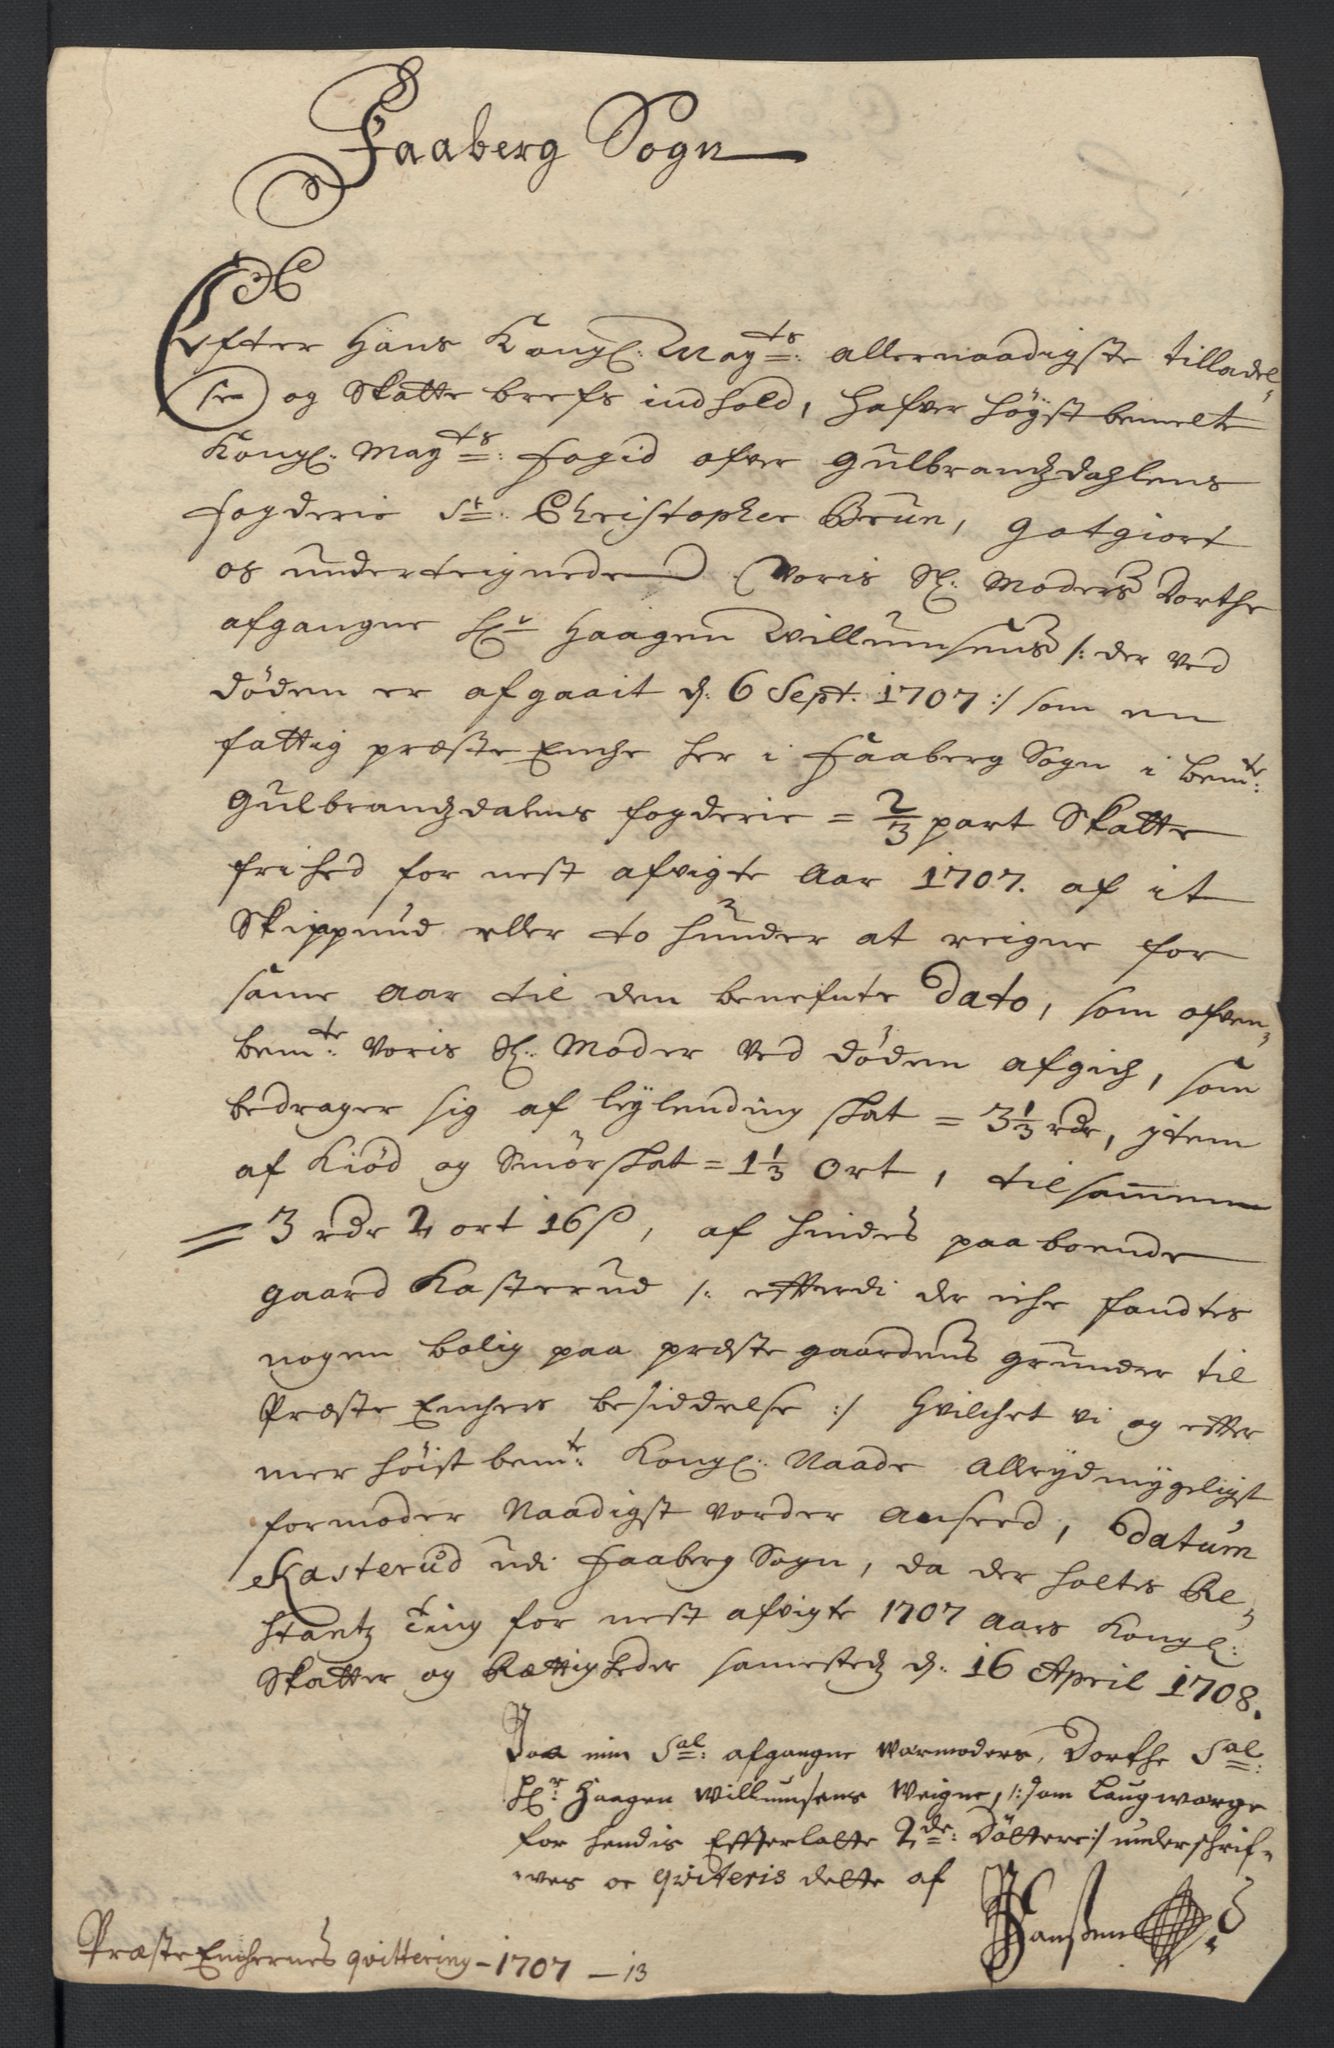 Faaberg Sogn
Efter Hans Kongl: Mayts: allernaadigste tilladel,
se og Skatte brefs indhold, hafver höyst bemelte
Kongl: Mayts: fogid ofver Gulbrandzdahlens
fogderie Sr: Christopher Brun, gotgiort
os underteignede Voris Sl: Moders Dorthe
afgangne Hr Haagen Willumsens /: der ved
döden er afgaait d: 6 Sept: 1707 :/ som en
fattig præste Enche her i Faaberg Sogn i bemte:
Gulbrandzdalens fogderie = 2/3 part Skatte
frihed for nest afvigte Aar 1707. af it
Skippund eller to hunder at reigne for
same Aar til den benefnte Dato, som ofven,
bemte: Voris Sl: Moder ved döden afgich, som
bedrager sig af leylending skat = 3 1/3 rdr, jtem
af Kiöd og Smör skat = 1 1/3 Ort, tilsammen
= 3 rdr 2 ort 16 s, af hindes paaboende
gaard Kasterud /: efterdi der iche fandtes
nogen bolig paa præstegaardens grunder til
Præste Enchers besiddelse :/ Hvilchet vi og efter
mer höist bemte: Kongl: Naade Allerydmygeligst
formoder Naadigst vorder anseed, Datum
Kasterud udi Faaberg Sogn, da der holtes Re,
stantz Ting for nest afvigte 1707 Aars Kongl:
Skatter og Rættigheder samestedz d: 16 April 1708.
Paa min Sal: afgangne Warmoders, Dorthe Sal:
Hr: Haagen Willumsens Weigne, /: som Laugwerge
for hendis Effterlatte 2de: Dötterr :/ underschrif-
wes oc qviteris dette af
Hanssen
Præste Enchernes qvittering - 1707 - 13